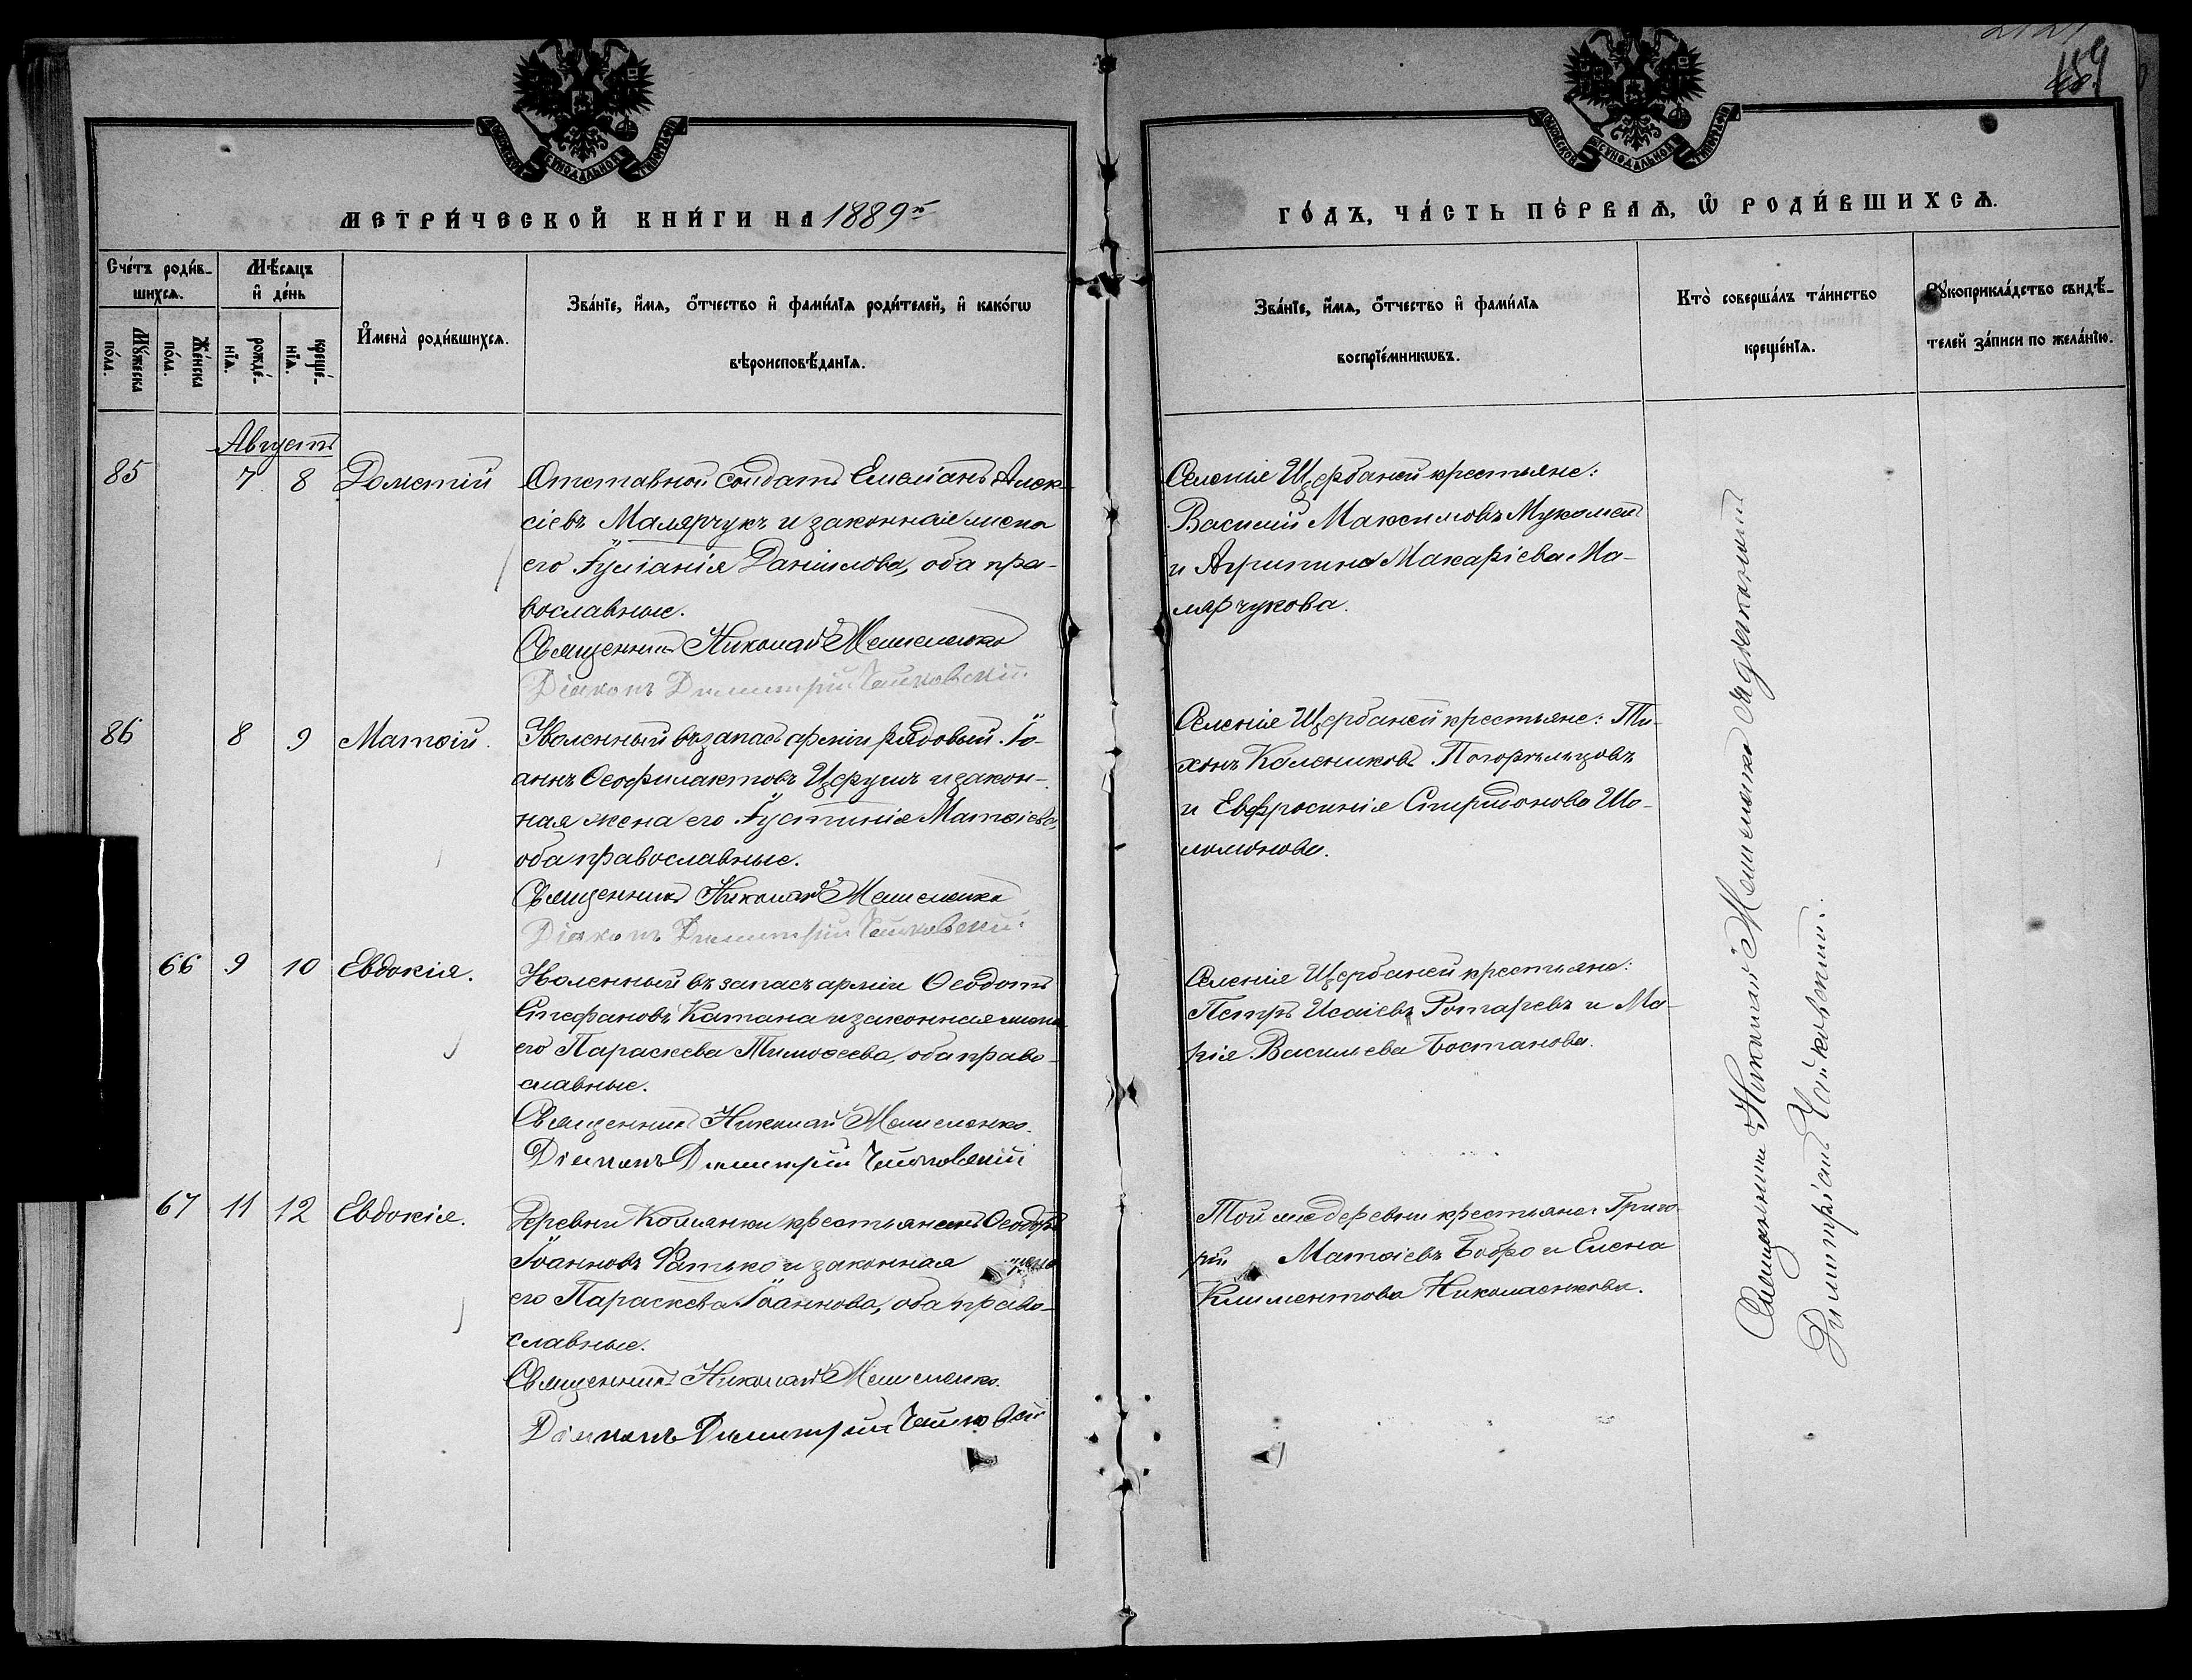 159
МЕТРИ́ЧЕСКОЙ КНИ́ГИ НА 1889й
ГО́ДЪ, ЧА́СТЬ ПЕ́РВАѦ, Ѡ РОДИ́ВШИХСѦ.
Сче́тъ роди́в-
шихсѧ.
Мѣ́сѧцъ
и де́нь
Мꙋ́жеска
по́ла.
Же́нска
по́ла.
рожде́-
нїѧ.
креще́-
нїѧ.
И҆мена̀ роди́вшихсѧ.
Зва́нїе, и҆́мѧ, ѻ҆́тчество и҆ фами́лїѧ роди́телей, и҆ како́гѡ
вѣроисповѣ́данїѧ.
Зва́нїе, и҆́мѧ, ѻ҆́тчество и҆ фами́лїѧ
воспрїе́мникѡвъ.
Кто̀ соверша́лъ та́инство
креще́нїѧ.
Рꙋкоприкла́дство свидѣ́-
телей за́писи по жела́нїю.
Августъ
85 7 8 Дометій
Отставной солдатъ Емеліанъ Алек-
сіевъ Малярчукъ и законная жена
его Іуліанія Даніилова, оба пра-
вославные.
Священникъ Николай Мешеленко
Діаконъ Димитрій Чайковскій.
Селенія Щербаней крестьяне:
Василій Максимовъ Мукомел
и Агрипина Макаріева Ма-
лярчукова.
86 8 9 Матѳій.
Уволенный въ запасъ арміи рядовый Іо-
аннъ Ѳеофилактовъ Церушъ и закон-
ная жена его Іустинія Матѳіева,
оба православные.
Священникъ Николай Мешеленко
Діаконъ Димитрій Чайковскій.
Селенія Щербаней крестьяне: Ти-
хонъ Калениковъ Погорѣльцовъ
и Евфросинія Спиридонова Шо-
ломонова.
66 9 10 Евдокія.
Уволенный въ запасъ арміи Ѳеодотъ
Стефановъ Катана и законная жена
его Параскева Тимоѳеева, оба право-
славные.
Священникъ Николай Мешеленко.
Діаконъ Димитрій Чайковскій
Селенія Щербаней крестьяне:
Петръ Исаіевъ Ротаревъ и Ма-
рія Васильева Бостанова.
67 11 12 Евдокія.
Деревни Касьянки крестьянинъ Ѳеодоръ
Іоанновъ Фатько и законная жена
его Параскева Іоаннова, оба право-
славные.
Священникъ Николай Мешеленко.
Діаконъ Димитрій Чайковскій
Той же деревни крестьяне: Григо-
рій Матѳіевъ Бобро и Елена
Климентова Николаенкова.
Священникъ Николай Мешеленко съ діакономъ
Димитріемъ Чайковскимъ.